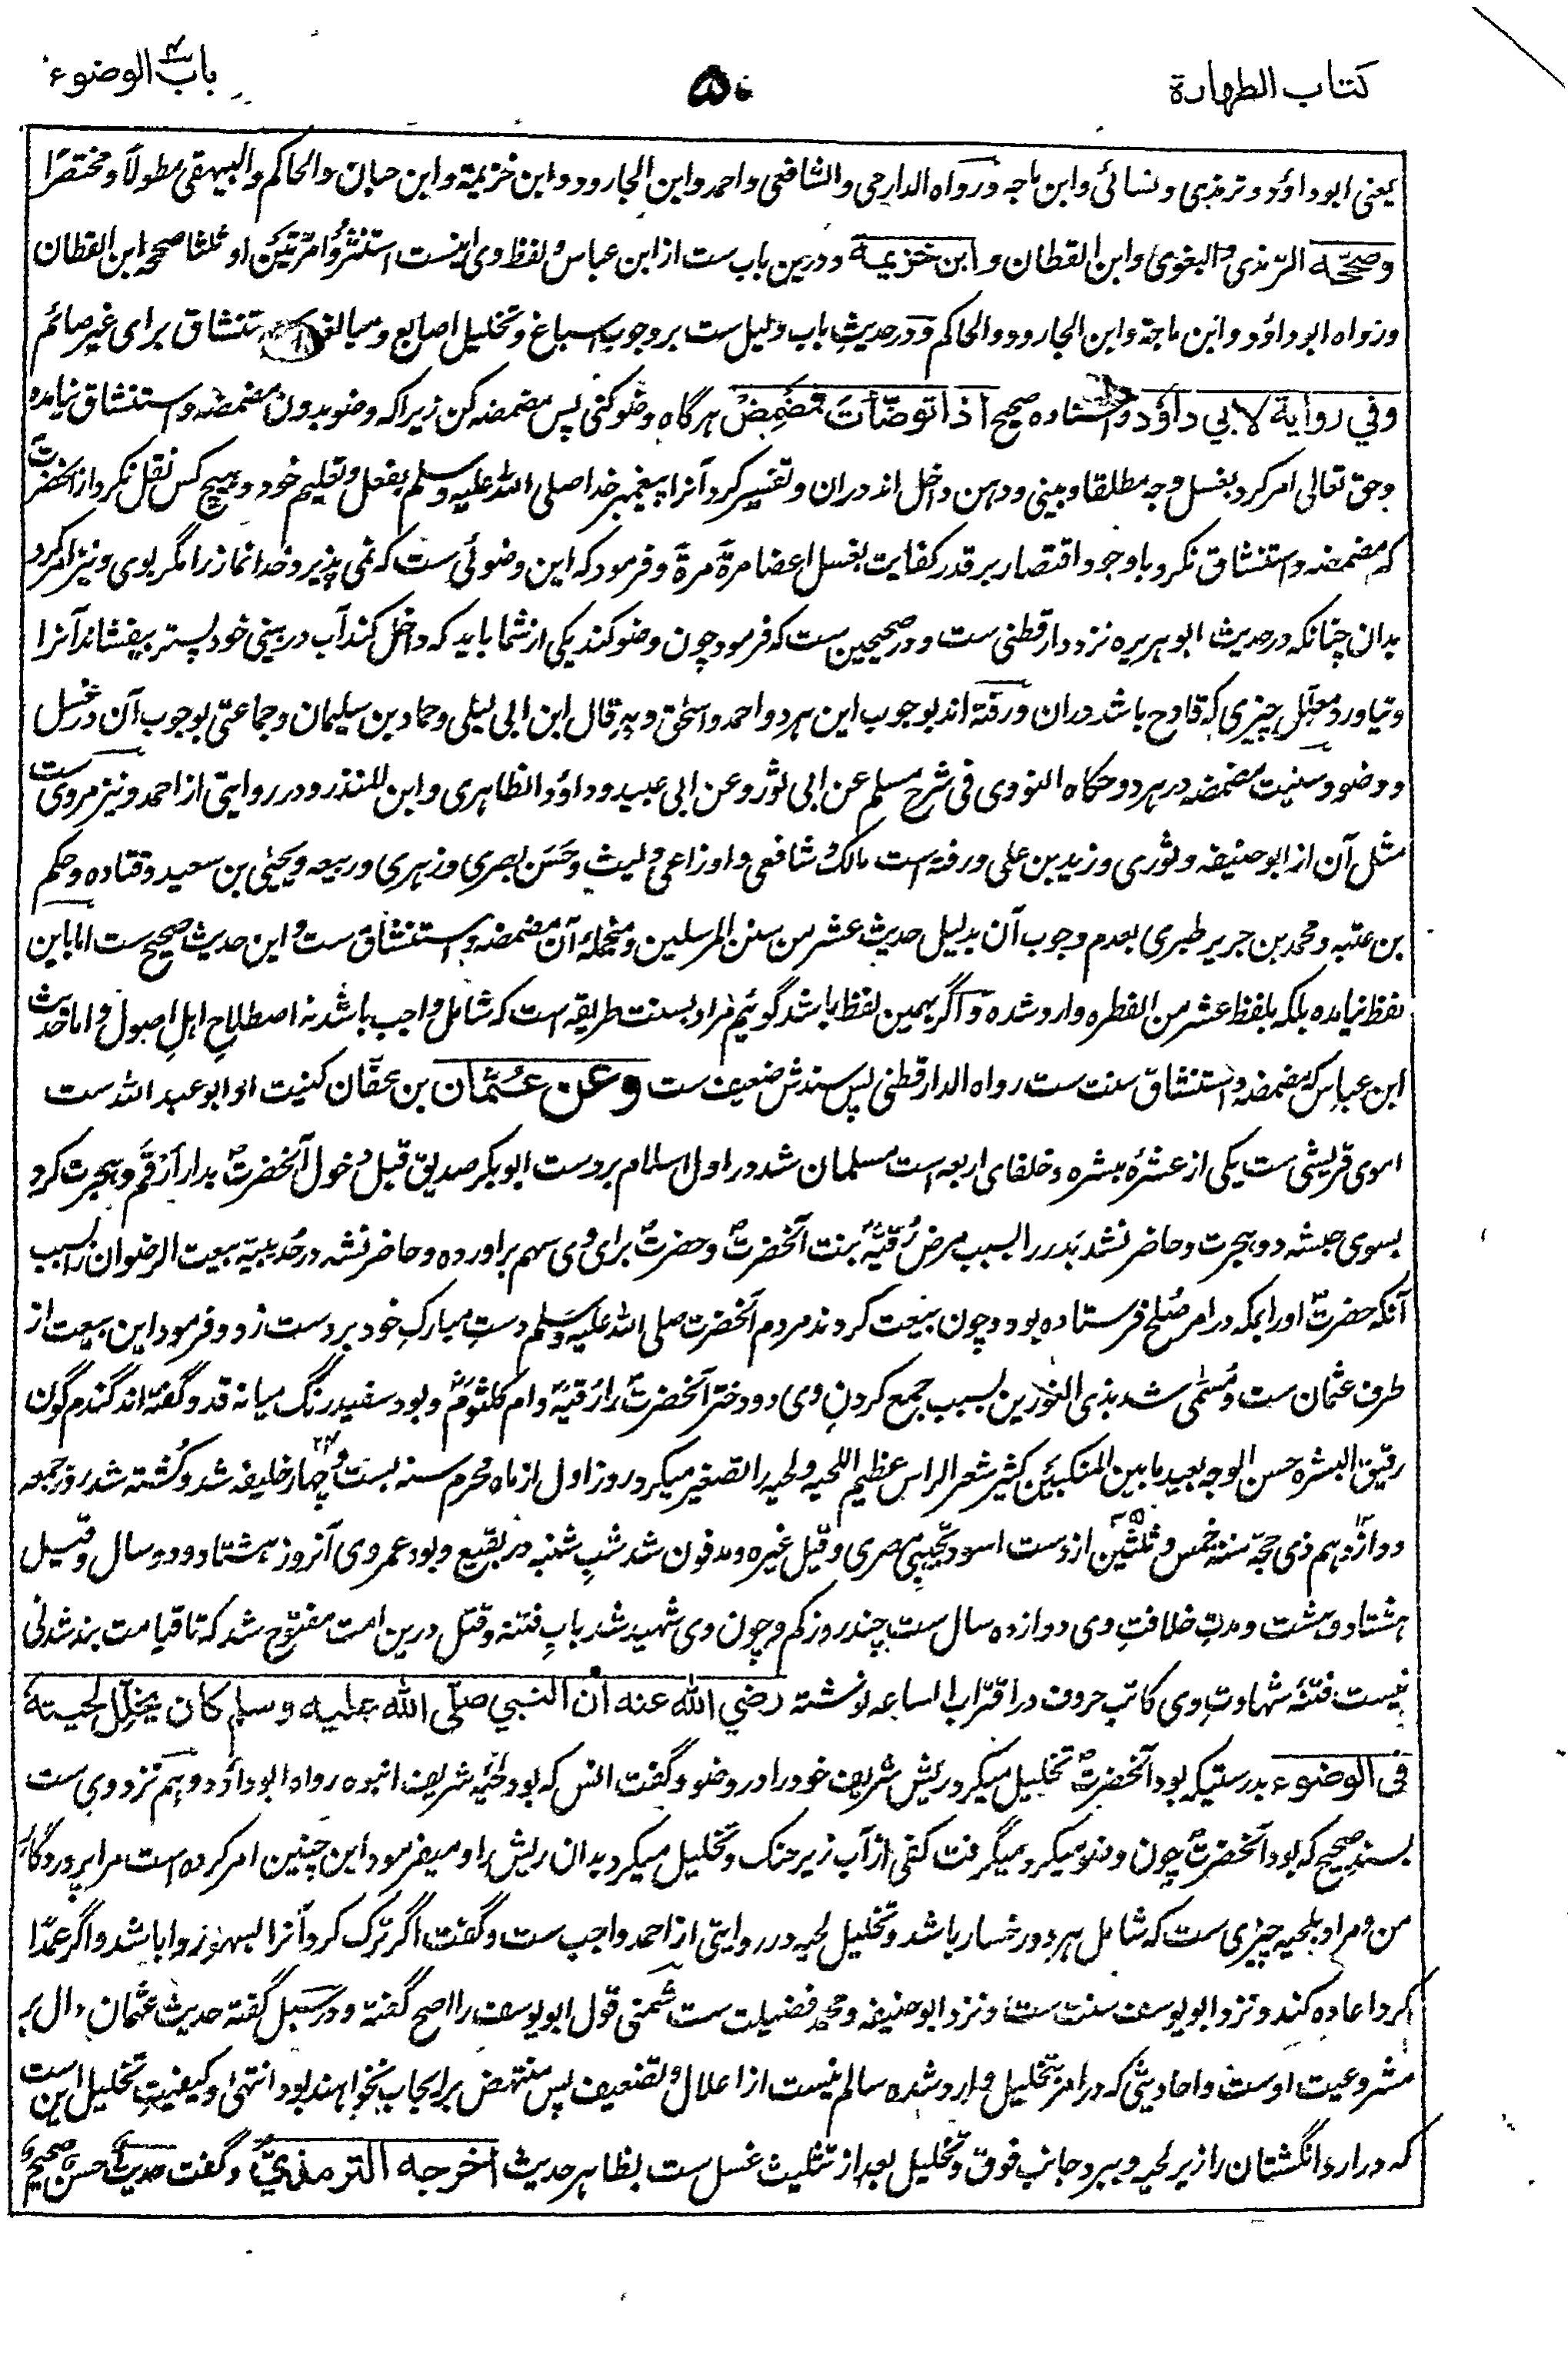 كتاب الطهارة
۵۰
باب الوضوء
یعنی ابوداؤد وترمذی ونسائی وابن ماجه ورواه الدارمی والشافعی واحمد وابن الجارود وابن خزیمة وابن حبان والحاکم والبیهقی مطولاً ومختصراً
وصححه الترمذی والبغوی وابن القطان وابن خزیمة ودرین باب ست از ابن عباس ولفظ وی اینست استنثروا مرتین او ثلثا صححه ابن القطان
ورواه ابوداؤد وابن ماجة وابن الجارود والحاکم ودر حدیث باب دلیل ست بر وجوب اسباغ وتخلیل اصابع ومبالغه استنشاق برای غیر صائم
وفي رواية لابي داؤد واسناده صحیح اذا توضأت فمضمض هرگاه وضو کنی پس مضمضه کن زیرا که وضو بدون مضمضه واستنشاق نیامده
وحق تعالی امر کرد بغسل وجه مطلقا وبینی ودهن داخل اند دران وتفسیر کرد آنرا پیغمبر خدا صلی الله علیه وسلم بفعل وتعلیم خود وهیچ کس نقل نکرد از آنحضرت
که مضمضه واستنشاق نکرد با وجود اقتصار بر قدر کفایت بغسل اعضا مرةً مرةً وفرمود که این وضوئی ست که نمی پذیرد خدا نماز را مگر بوی ونیز امر کرد
بدان چنانکه در حدیث ابو هریره نزد دارقطنی ست ودر صحیحین ست که فرمود چون وضو کند یکی از شما باید که داخل کند آب در بینی خود پستر بیفشاند آنرا
ونیاورد معلّل چیزی که قادح باشد دران ورفته اند بوجوب این هر دو احمد واسحٰق وبه قال ابن ابی لیلی وحماد بن سلیمان وجماعتی بوجوب آن در غسل
ووضو وسنیت مضمضه در هر دو حکاه النووی فی شرح مسلم عن ابی ثور وعن ابی عبید وداؤد الظاهری وابن المنذر ودر روایتی از احمد ونیز مروی ست
مثل آن از ابوحنیفه وثوری وزید بن علی ورفته است مالک وشافعی واوزاعی ولیث وحسن بصری وزهری وربیعه ویحییٰ بن سعید وقتاده وحکم
بن عتبه ومحمد بن جریر طبری بعدم وجوب آن بدلیل حدیث عشر من سنن المرسلین ومنجملهٔ آن مضمضه واستنشاق ست واین حدیث صحیح ست اما باین
لفظ نیامده بلکه بلفظ عشر من الفطره وارد شده واگر بهمین لفظ باشد گوئیم مراد بسنت طریقه است که شامل واجب باشد نه اصطلاح اهل اصول واما حدیث
ابن عباس که مضمضه واستنشاق سنت ست رواه الدارقطنی پس سندش ضعیف ست وعن عثمان بن عفّان کنیت او ابو عبد الله ست
اموی قریشی ست یکی از عشرهٔ مبشره وخلفای اربعه است مسلمان شد در اول اسلام بر دست ابوبکر صدیق قبل دخول آنحضرت بدار ارقم وهجرت کرد
بسوی حبشه دو هجرت وحاضر نشد بدر را بسبب مرض رقیّه بنت آنحضرت وحضرت برای وی سهم برآورده وحاضر نشد در حدیبیه بیعت الرضوان را بسبب
آنکه حضرت او را بمکه در امر صلح فرستاده بود وچون بیعت کردند مردم آنحضرت صلی الله علیه وسلم دست مبارک خود بر دست زد وفرمود این بیعت از
طرف عثمان ست ومسمّی شد بذی النورین بسبب جمع کردن وی دو دختر آنحضرت را رقیّه وام کلثوم وبود سفید رنگ میانه قد وگفته اند گندم گون
رقیق البشره حسن الوجه بعید ما بین المنکبین کثیر شعر الراس عظیم اللحیه ولحیه را تصغیر میکرد روز اول از ماه محرم سنه بست وچهار ۲۴ خلیفه شد وکشته شد روز جمعه
دوازدهم ذی حجه سنه خمس وثلثین ۳۵ از دست اسود تجیبی مصری وقیل غیره ومدفون شد شب شنبه در بقیع وبود عمر وی آنروز هشتاد ودو سال وقیل
هشتاد وهشت ومدت خلافت وی دوازده سال ست چند روز کم وچون وی شهید شد باب فتنه وقتل درین امت مفتوح شد که تا قیامت بند شدنی
نیست فتنهٔ شهادت وی کاتب حروف در اقتراب الساعه نوشته رضي الله عنه ان النبي صلى الله عليه وسلم كان يخلّل لحيته
في الوضوء بدرستیکه بود آنحضرت تخلیل میکرد ریش شریف خود را در وضو وگفت انس که بود لحیهٔ شریف انبوه رواه ابوداؤد وهم نزد وی ست
بسند صحیح که بود آنحضرت چون وضو میکرد میگرفت کفی از آب زیر حنک وتخلیل میکرد بدان ریش را ومیفرمود این چنین امر کرده است مرا پروردگار
من ومراد بلحیه چیزی ست که شامل هر دو رخسار باشد وتخلیل لحیه در روایتی از احمد واجب ست وگفت اگر ترک کرد آنرا بسهو روا باشد واگر عمداً
کرد اعاده کند ونزد ابویوسف سنت ست ونزد ابوحنیفه ومحمد فضیلت ست شمنی قول ابویوسف را اصح گفته ودر سبل گفته حدیث عثمان دال بر
مشروعیت اوست واحادیثی که در امر بتخلیل وارد شده سالم نیست از اعلال وتضعیف پس منتهض بر ایجاب نخواهند بود انتهیٰ وکیفیت تخلیل این است
که درآرد انگشتان را زیر لحیه وببرد جانب فوق وتخلیل بعد از تثلیث غسل ست بظاهر حدیث اخرجه الترمذيّ وگفت حدیث حسن صحیح